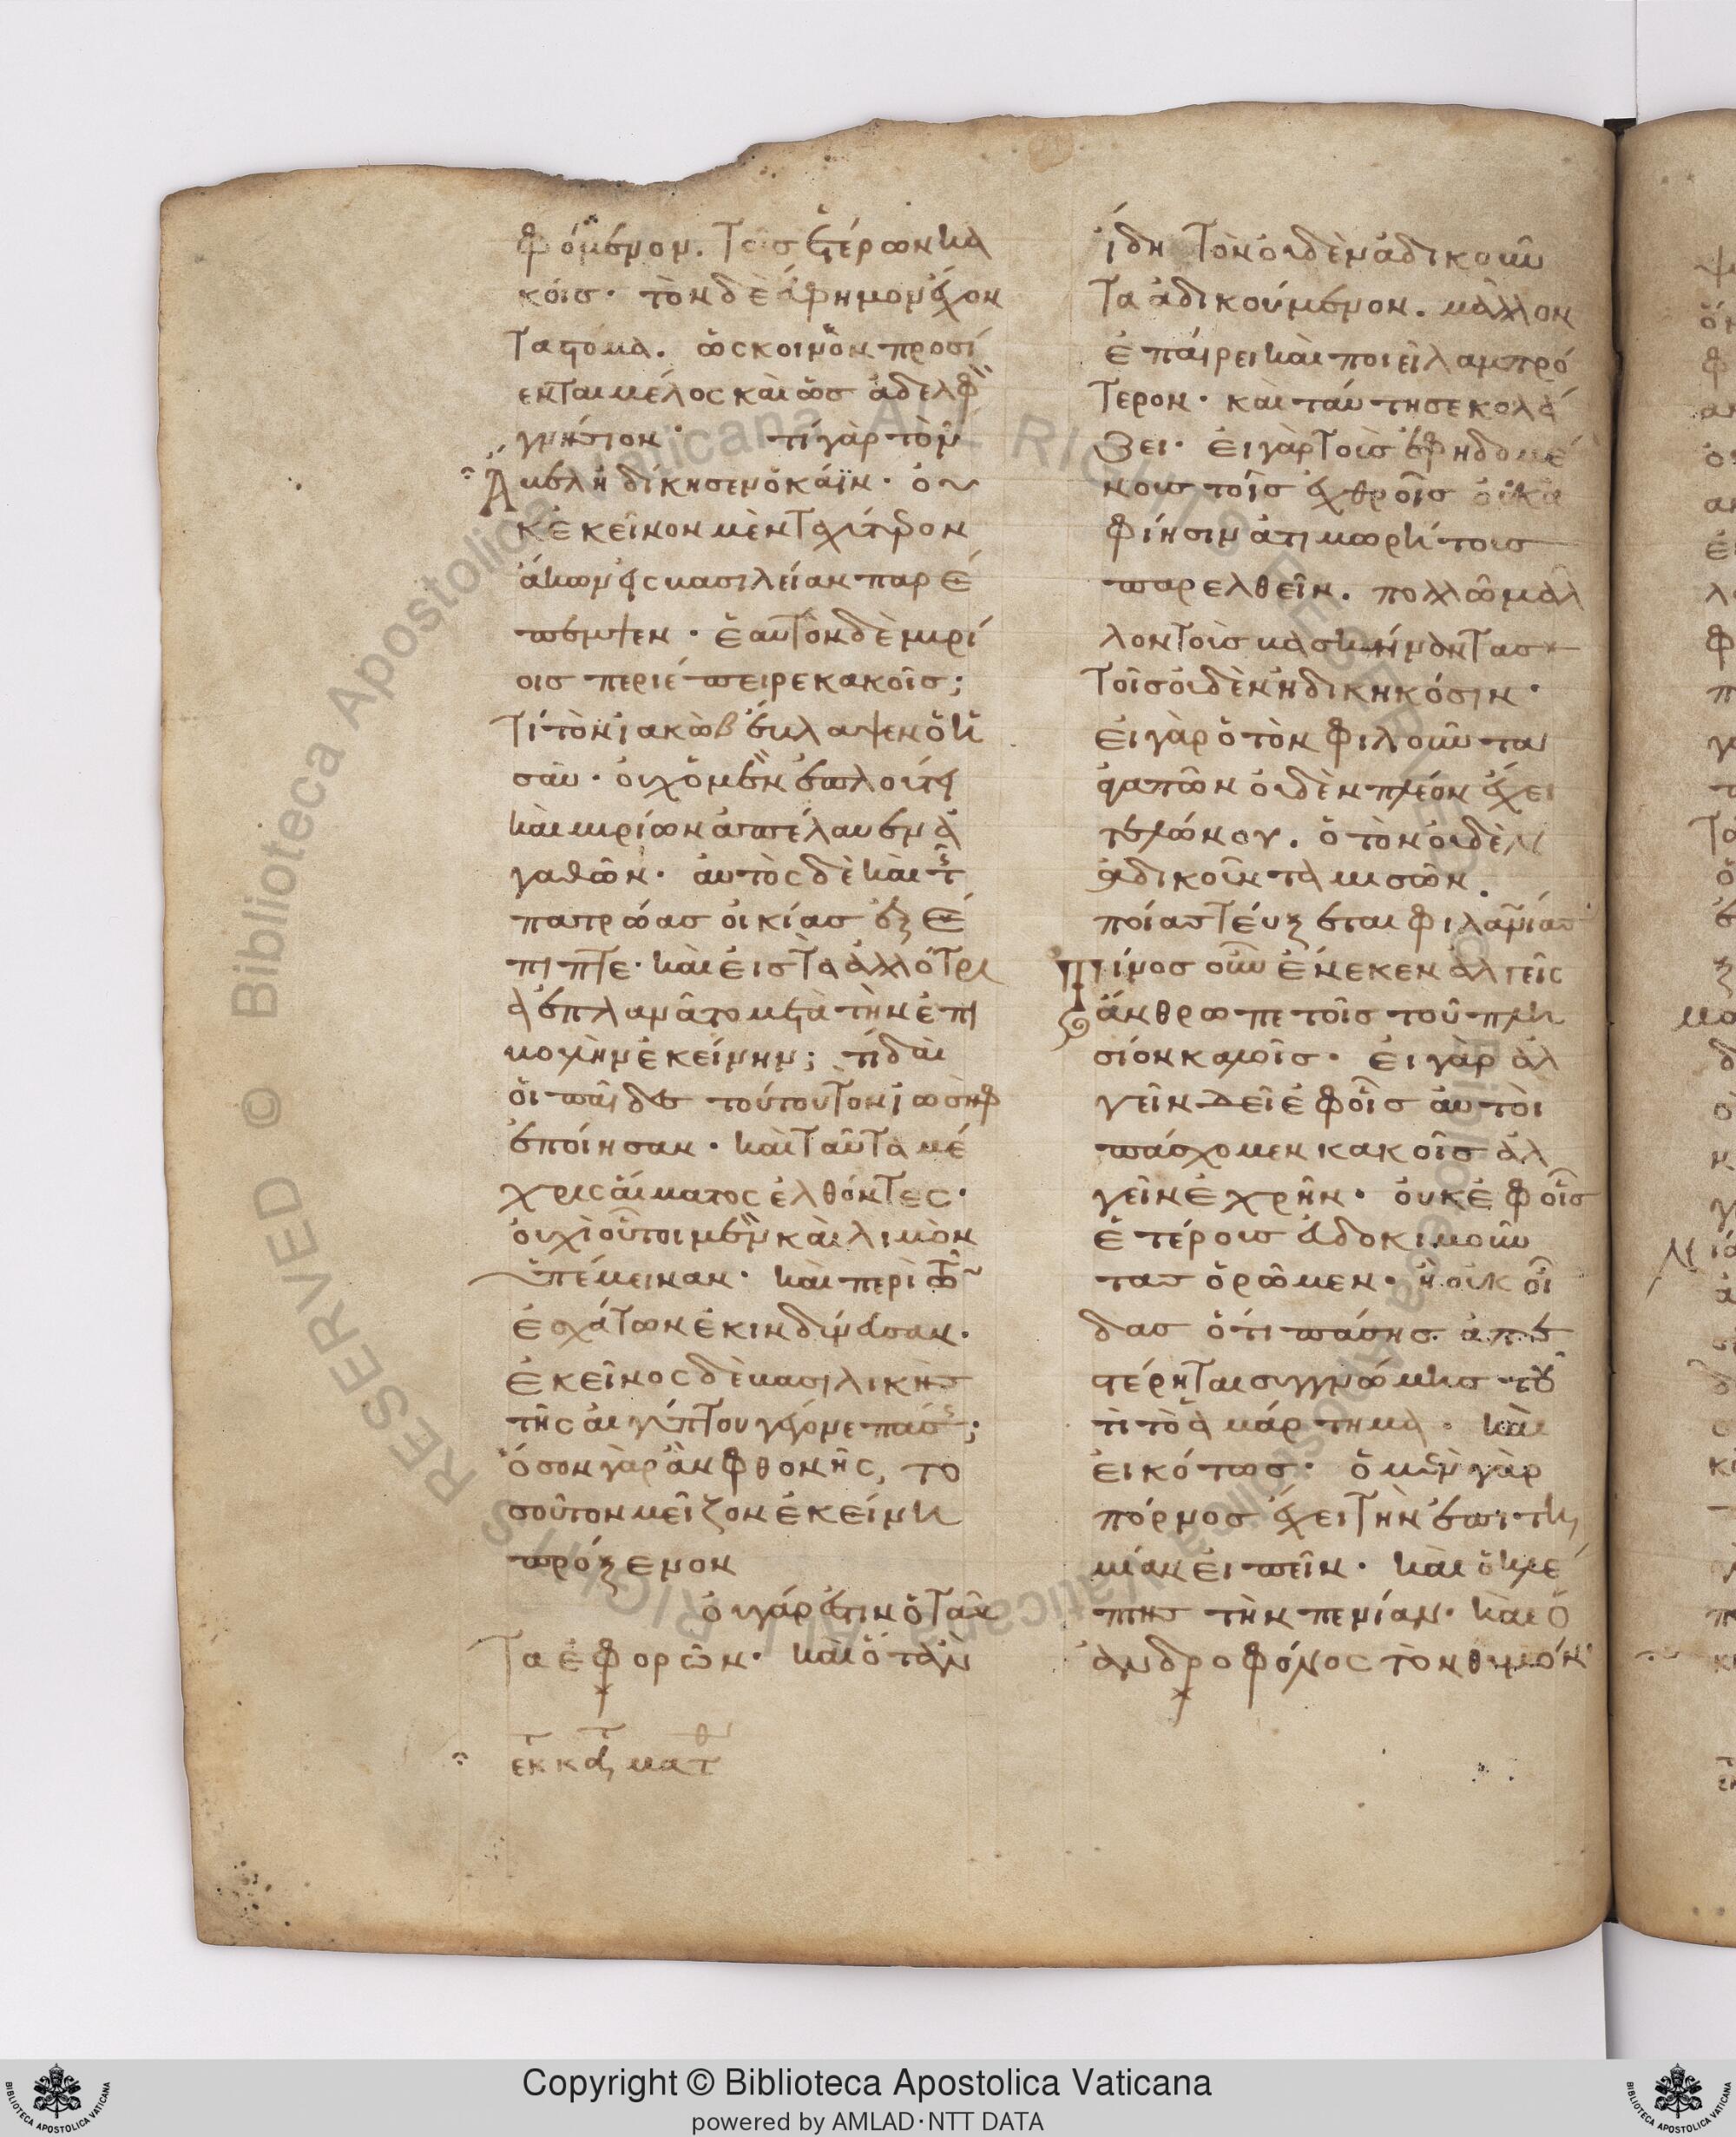 φόμενον. Τοῖς ἑτέρων κα
κοῖς· τὸν δὲ ἄφθονον ἔχον
τα στόμα. ὡς κοινὸν προσί
ενται μέλος καὶ ὡς ἀδελφὸν
γνήσιον· τί γὰρ τὸν
Ἄβελ ἠδίκησεν ὁ κάϊν· οὐ
κ ἐκεῖνον μὲν ταχύτερον
ἄκων εἰς βασιλείαν παρέ
πεμψεν· ἑαυτὸν δὲ μυρί
οις περιέπειρε κακοῖς;
Τί τὸν ἰακὼβ ἔβλαψεν ὁ ἠ
σαῦ· οὐχ ὁ μὲν ἐπλούτει
καὶ μυρίων ἀπέλαυεν ἀ
γαθῶν· αὐτὸς δὲ καὶ τῆς
πατρώας οἰκίας ἐξέ
πιπτε· καὶ εἰς τὰ ἀλλότρι
α ἐπλανᾶτο μετὰ τὴν ἐπι
βουλὴν ἐκείνην; τί δαὶ
οἱ παῖδες τούτου τὸν ἰωσὴφ
ἐποίησαν· καὶ ταῦτα μέ
χρις αἵματος ἐλθόντες·
οὐχὶ οὗτοι μὲν καὶ λιμὸν
ὑπέμειναν· καὶ περὶ τῶν
ἐσχάτων ἐκινδύνευσαν·
ἐκεῖνος δὲ βασιλικῆς
τῆς αἰγύπτου γέγονε πάσης;
ὅσον γὰρ ἂν φθονῇς, το
σοῦτον μεῖζον ἐκείνῳ
πρόξενον
οὐ γάρ ἐστιν ὁ ταῦ
τα ἐφορῶν· καὶ ὅταν
ἐκ κατ ματθ
ἴδη τὸν οὐδὲν ἀδικοῦν
τα ἀδικούμενον. μᾶλλον
ἐπαίρει καὶ ποιεῖ λαμπρό
τερον· καὶ ταύτῃ σε κολά
ζει· εἰ γὰρ τοὺς ἐφηδομέ
νους τοῖς ἐχθροῖς οὐκ ἀ
φίησιν ἀτιμωρήτους
παρελθεῖν. πολλῷ μᾶλ
λον τοὺς βασκήναντας
τοῖς οὐδὲν ἠδικηκόσιν·
εἰ γὰρ ὁ τὸν φιλοῦντα
ἀγαπῶν οὐδὲν πλέον ἔχει
τελώνου. ὁ τὸν οὐδὲν
ἀδικοῦντα μισῶν.
ποίας τεύξεται φιλανίας
Τίνος οὖν ἕνεκεν ἀλγεῖς
ἄνθρωπε τοῖς τοῦ πλη
σίον καλοῖς· εἰ γὰρ ἀλ
γεῖν δεῖ ἐφ οἷς αὐτοὶ
πάσχομεν κακοῖς ἀλ
γεῖν ἐχρῆν· οὐκ ἐφ οἷς
ἑτέροις εὐδοκιμοῦν
τας ὁρῶμεν· ἢ οὐκ οἶ
δας ὅτι πάσης ἀπε
στέρηται συγγνώμης του
τὶ τὸ ἁμάρτημα· καὶ
εἰκότως· ὁ μὲν γὰρ
πόρνος ἔχει τὴν ἐπιθυ
μίαν εἰπεῖν· καὶ ὁ κλέ
πτης τὴν πενίαν· καὶ ὁ
ἀνδροφόνος τὸν θυμόν